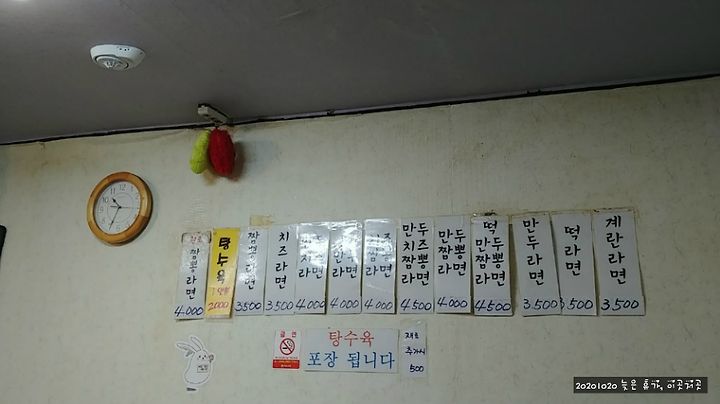 짬뽕라면
4.000
탕수육
2000
짬뽕라면
3500
치즈라면
3,500
4.000
4.000
4.000
만두치즈짬뽕라면
4500
만두짬뽕라면
4.000
떡만두짬뽕라면
4500
만두라면
3.500
떡라면
3,500
계란라면
3,500
금연
탕수육
포장 됩니다
재료
추가시
500
20201020 늦은 휴가, 이곳저곳